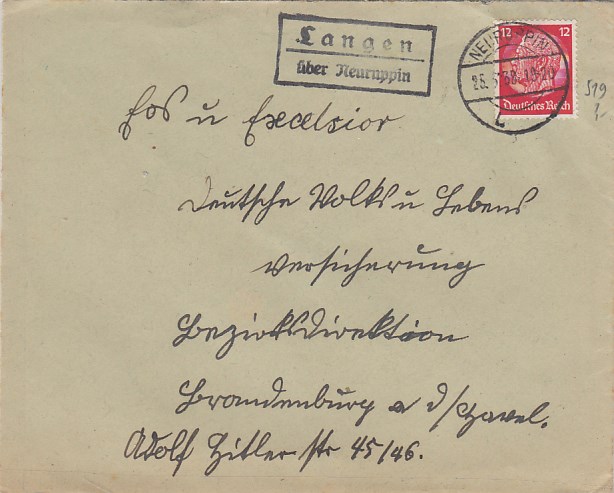 Langen
über Neuruppin
12 12
NEURUPPIN
Deutsches Reich
519
Eos u Excelsior
Deutsche Volks u Lebens
versicherung
Bezirksdirektion
Brandenburg a d/Havel.
Adolf Hitler str 45/46.